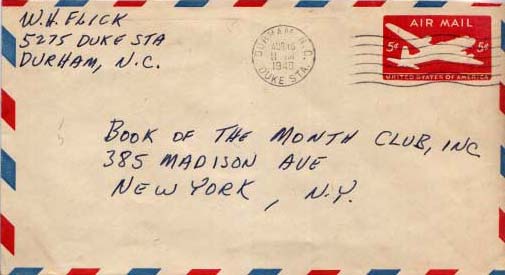 W.H. FLICK
5275 DUKE STA
DURHAM, N.C.
DURHAM, N.C.
1948
DUKE STA.
AIR MAIL
5¢ 5¢
UNITED STATES OF AMERICA
BOOK OF THE MONTH CLUB, INC
385 MADISON AVE
NEW YORK, N.Y.